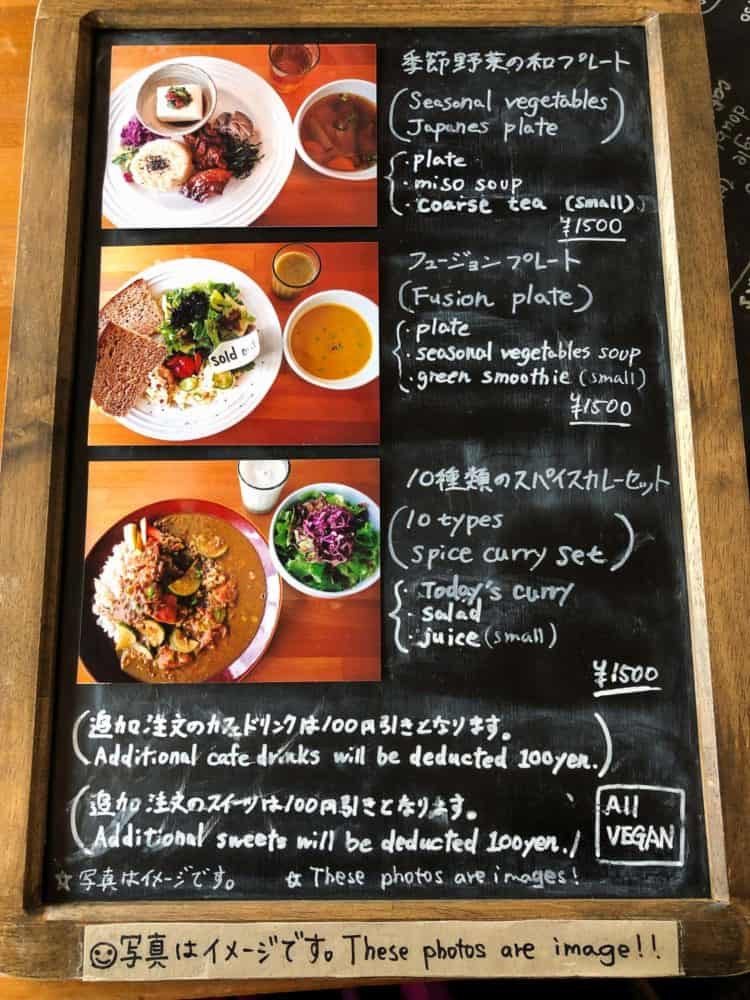 季節野菜の和プレート
(Seasonal vegetables
Japanes plate)
・plate
・miso soup
・coarse tea (small)
¥1500
フュージョンプレート
(Fusion plate)
・plate
・seasonal vegetables soup
・green smoothie (small)
¥1500
sold out
10種類のスパイスカレーセット
(10 types
spice curry set)
・Today's curry
・salad
・juice (small)
¥1500
(追加注文のカフェドリンクは100円引きとなります。
Additional cafe drinks will be deducted 100yen.)
(追加注文のスイーツは100円引きとなります。
Additional sweets will be deducted 100yen.)
All
VEGAN
☆写真はイメージです。 ☆ These photos are images!
☺写真はイメージです。These photos are image!!